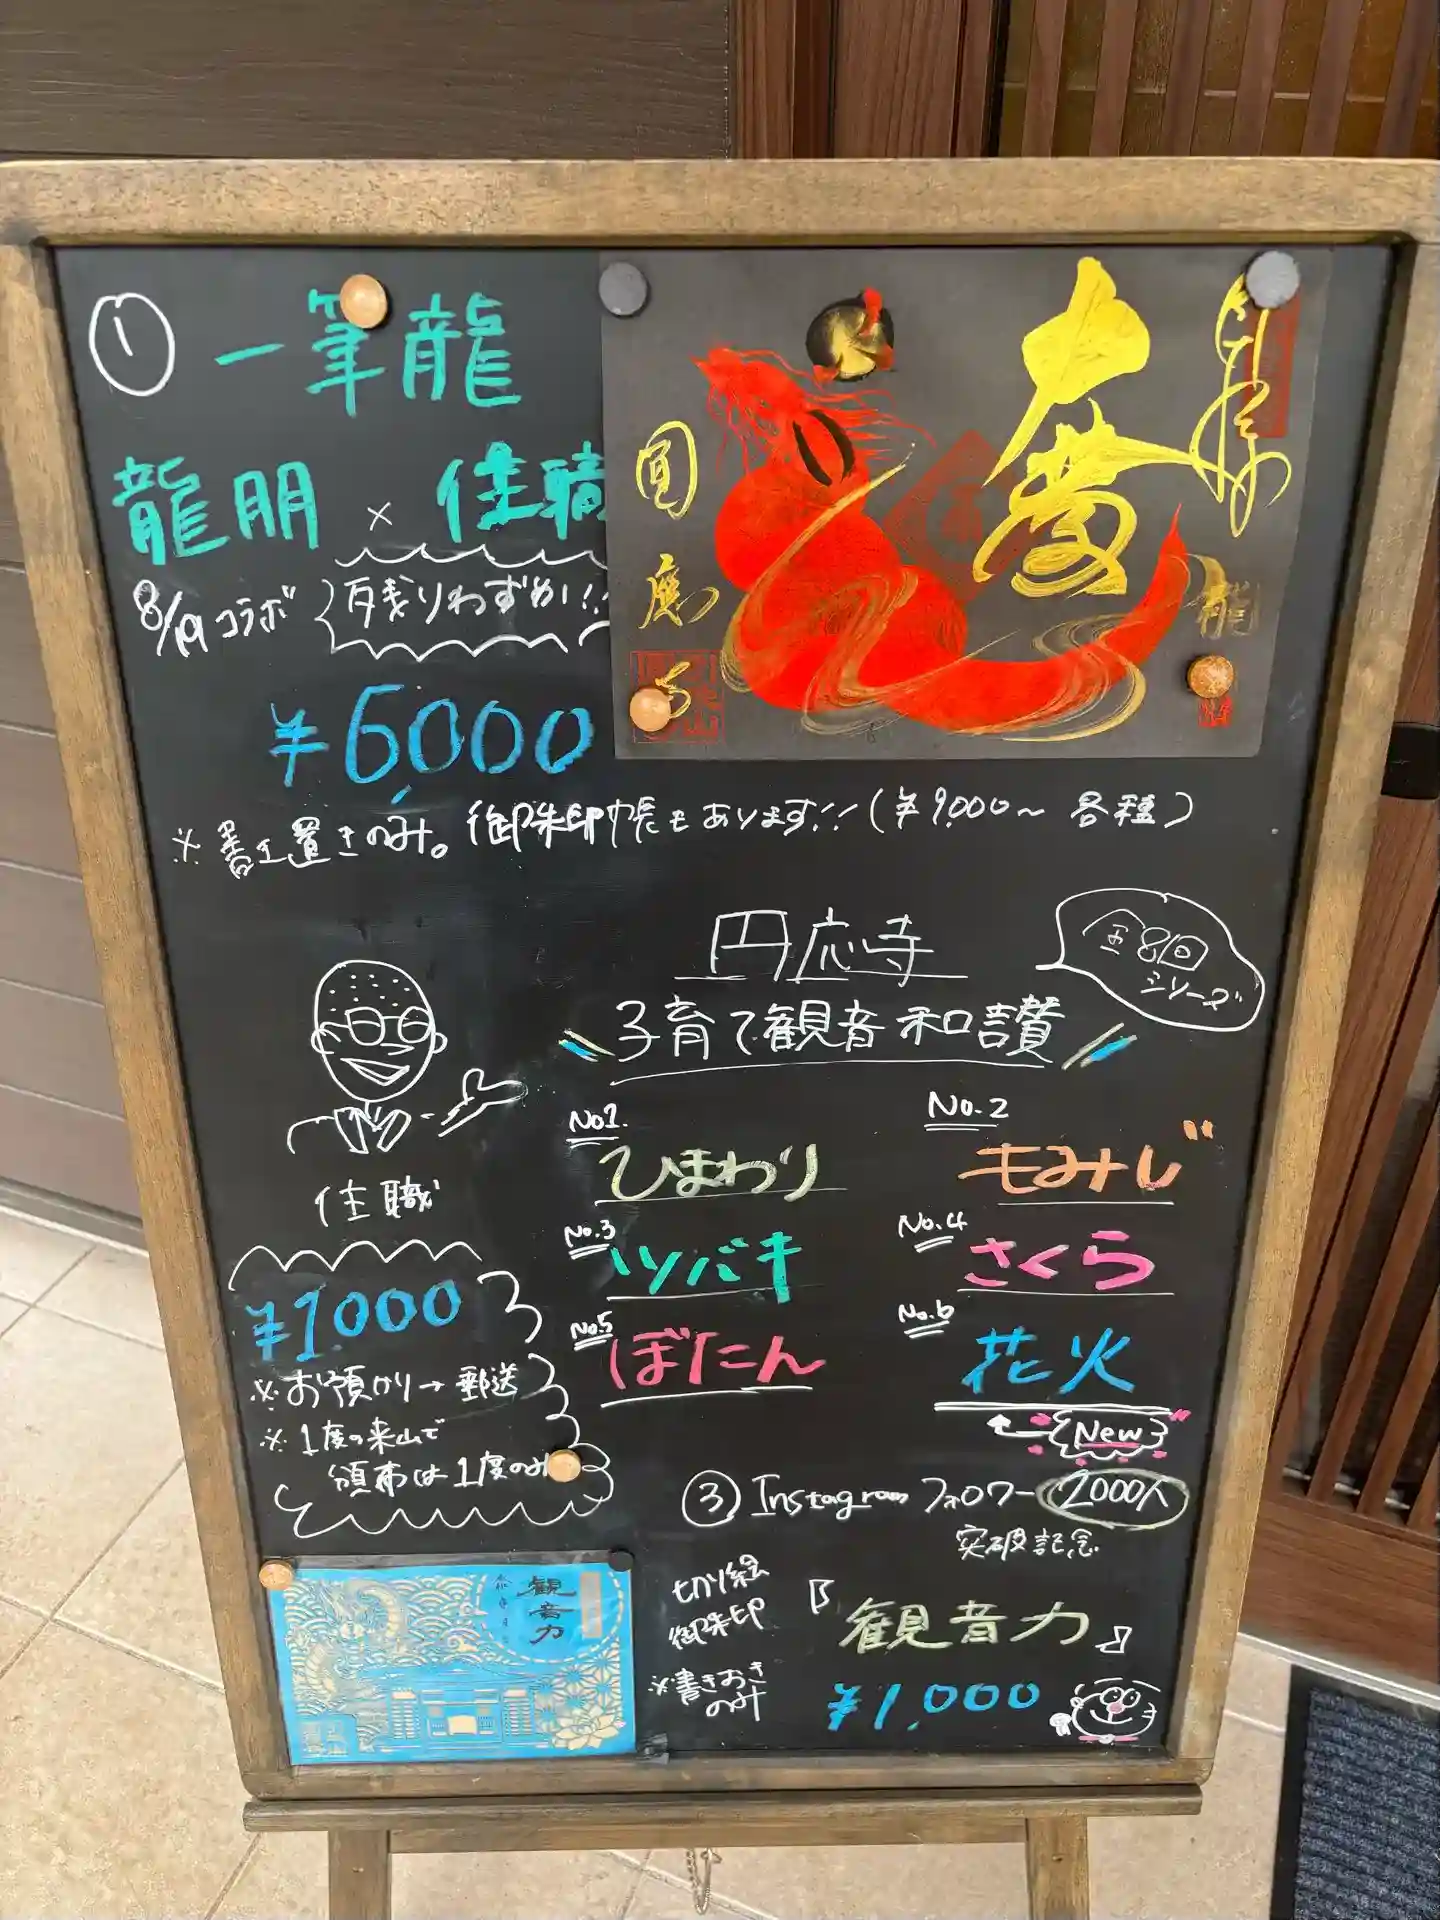 ① 一筆龍
龍朋 × 住職
8/19コラボ 残りわずか!!
¥6000
※書き置きのみ。御朱印帳もあります!!(¥9,000〜 各種)
圓應寺
龍
円応寺
全8回
シリーズ
子育て観音和讃
住職
No1. ひまわり
No.2 もみじ
No.3 ツバキ
No.4 さくら
No.5 ぼたん
No.6 花火
New
¥1.000
※お預かり→郵送
※1度の来山で
頒布は1度のみ
③Instagramフォロワー2000人
突破記念
切り絵
御朱印
※書きおき
のみ
『観音力』
¥1,000
観音力